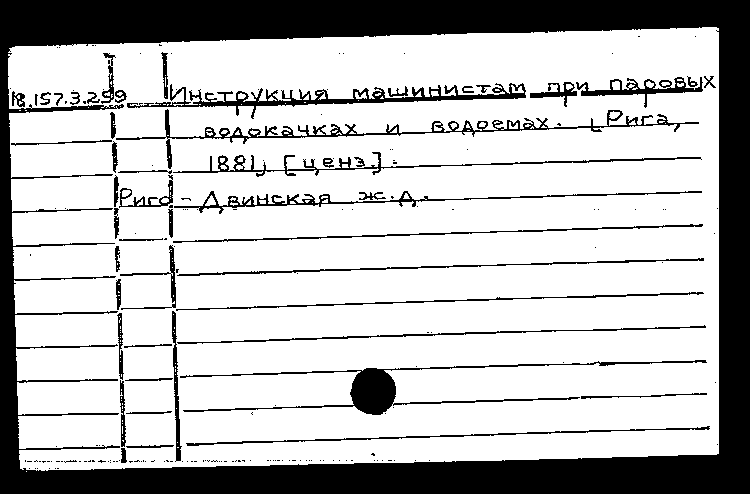 18.157.3.259 Инструкция машинистам при паровых
водокачках и водоемах. [Рига,
1881, [ценз.].
Риго-Двинская ж.д.